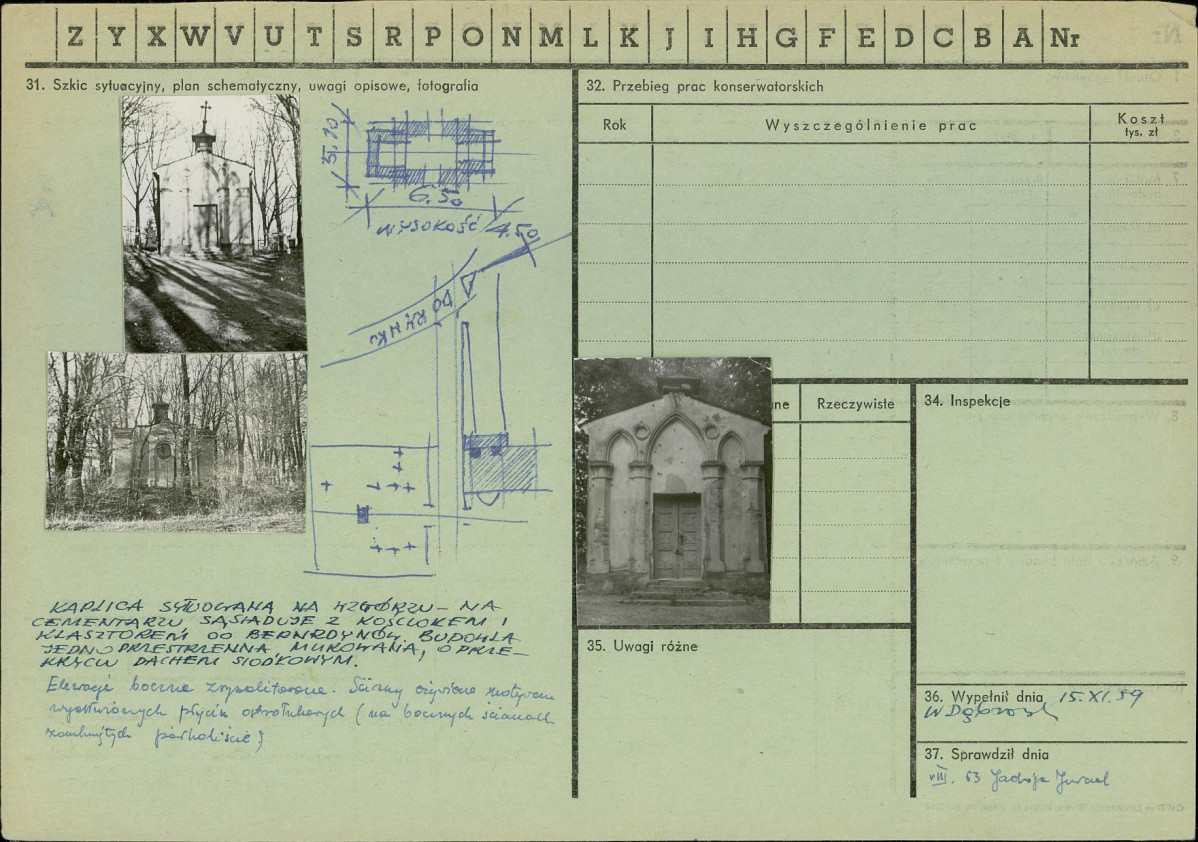 Z Y X W V U T S R P O N M L K J I H G F E D C B A Nr
31. Szkic sytuacyjny, plan schematyczny, uwagi opisowe, fotografia
5,10
6.50
WYSOKOŚĆ 4.50
DO RYNKU
KAPLICA SYTUOWANA NA WZGÓRZU – NA
CMENTARZU SĄSIADUJE Z KOŚCIOŁEM I
KLASZTOREM OO BERNRDYNÓW. BUDOWLA
JEDNOPRZESTRZENNA, MUROWANA, O PRZE-
KRYCIU DACHEM SIODŁKOWYM.
Elewacje boczne Ściany ożywione motywem
płycin ostrołukowych (na bocznych ścianach
zamkniętych półkoliście)
32. Przebieg prac konserwatorskich
Rok
Wyszczególnienie prac
Koszt
tys. zł
ne
Rzeczywiste
34. Inspekcje
35. Uwagi różne
36. Wypełnił dnia 15.XI.59
37. Sprawdził dnia
VIII. 63